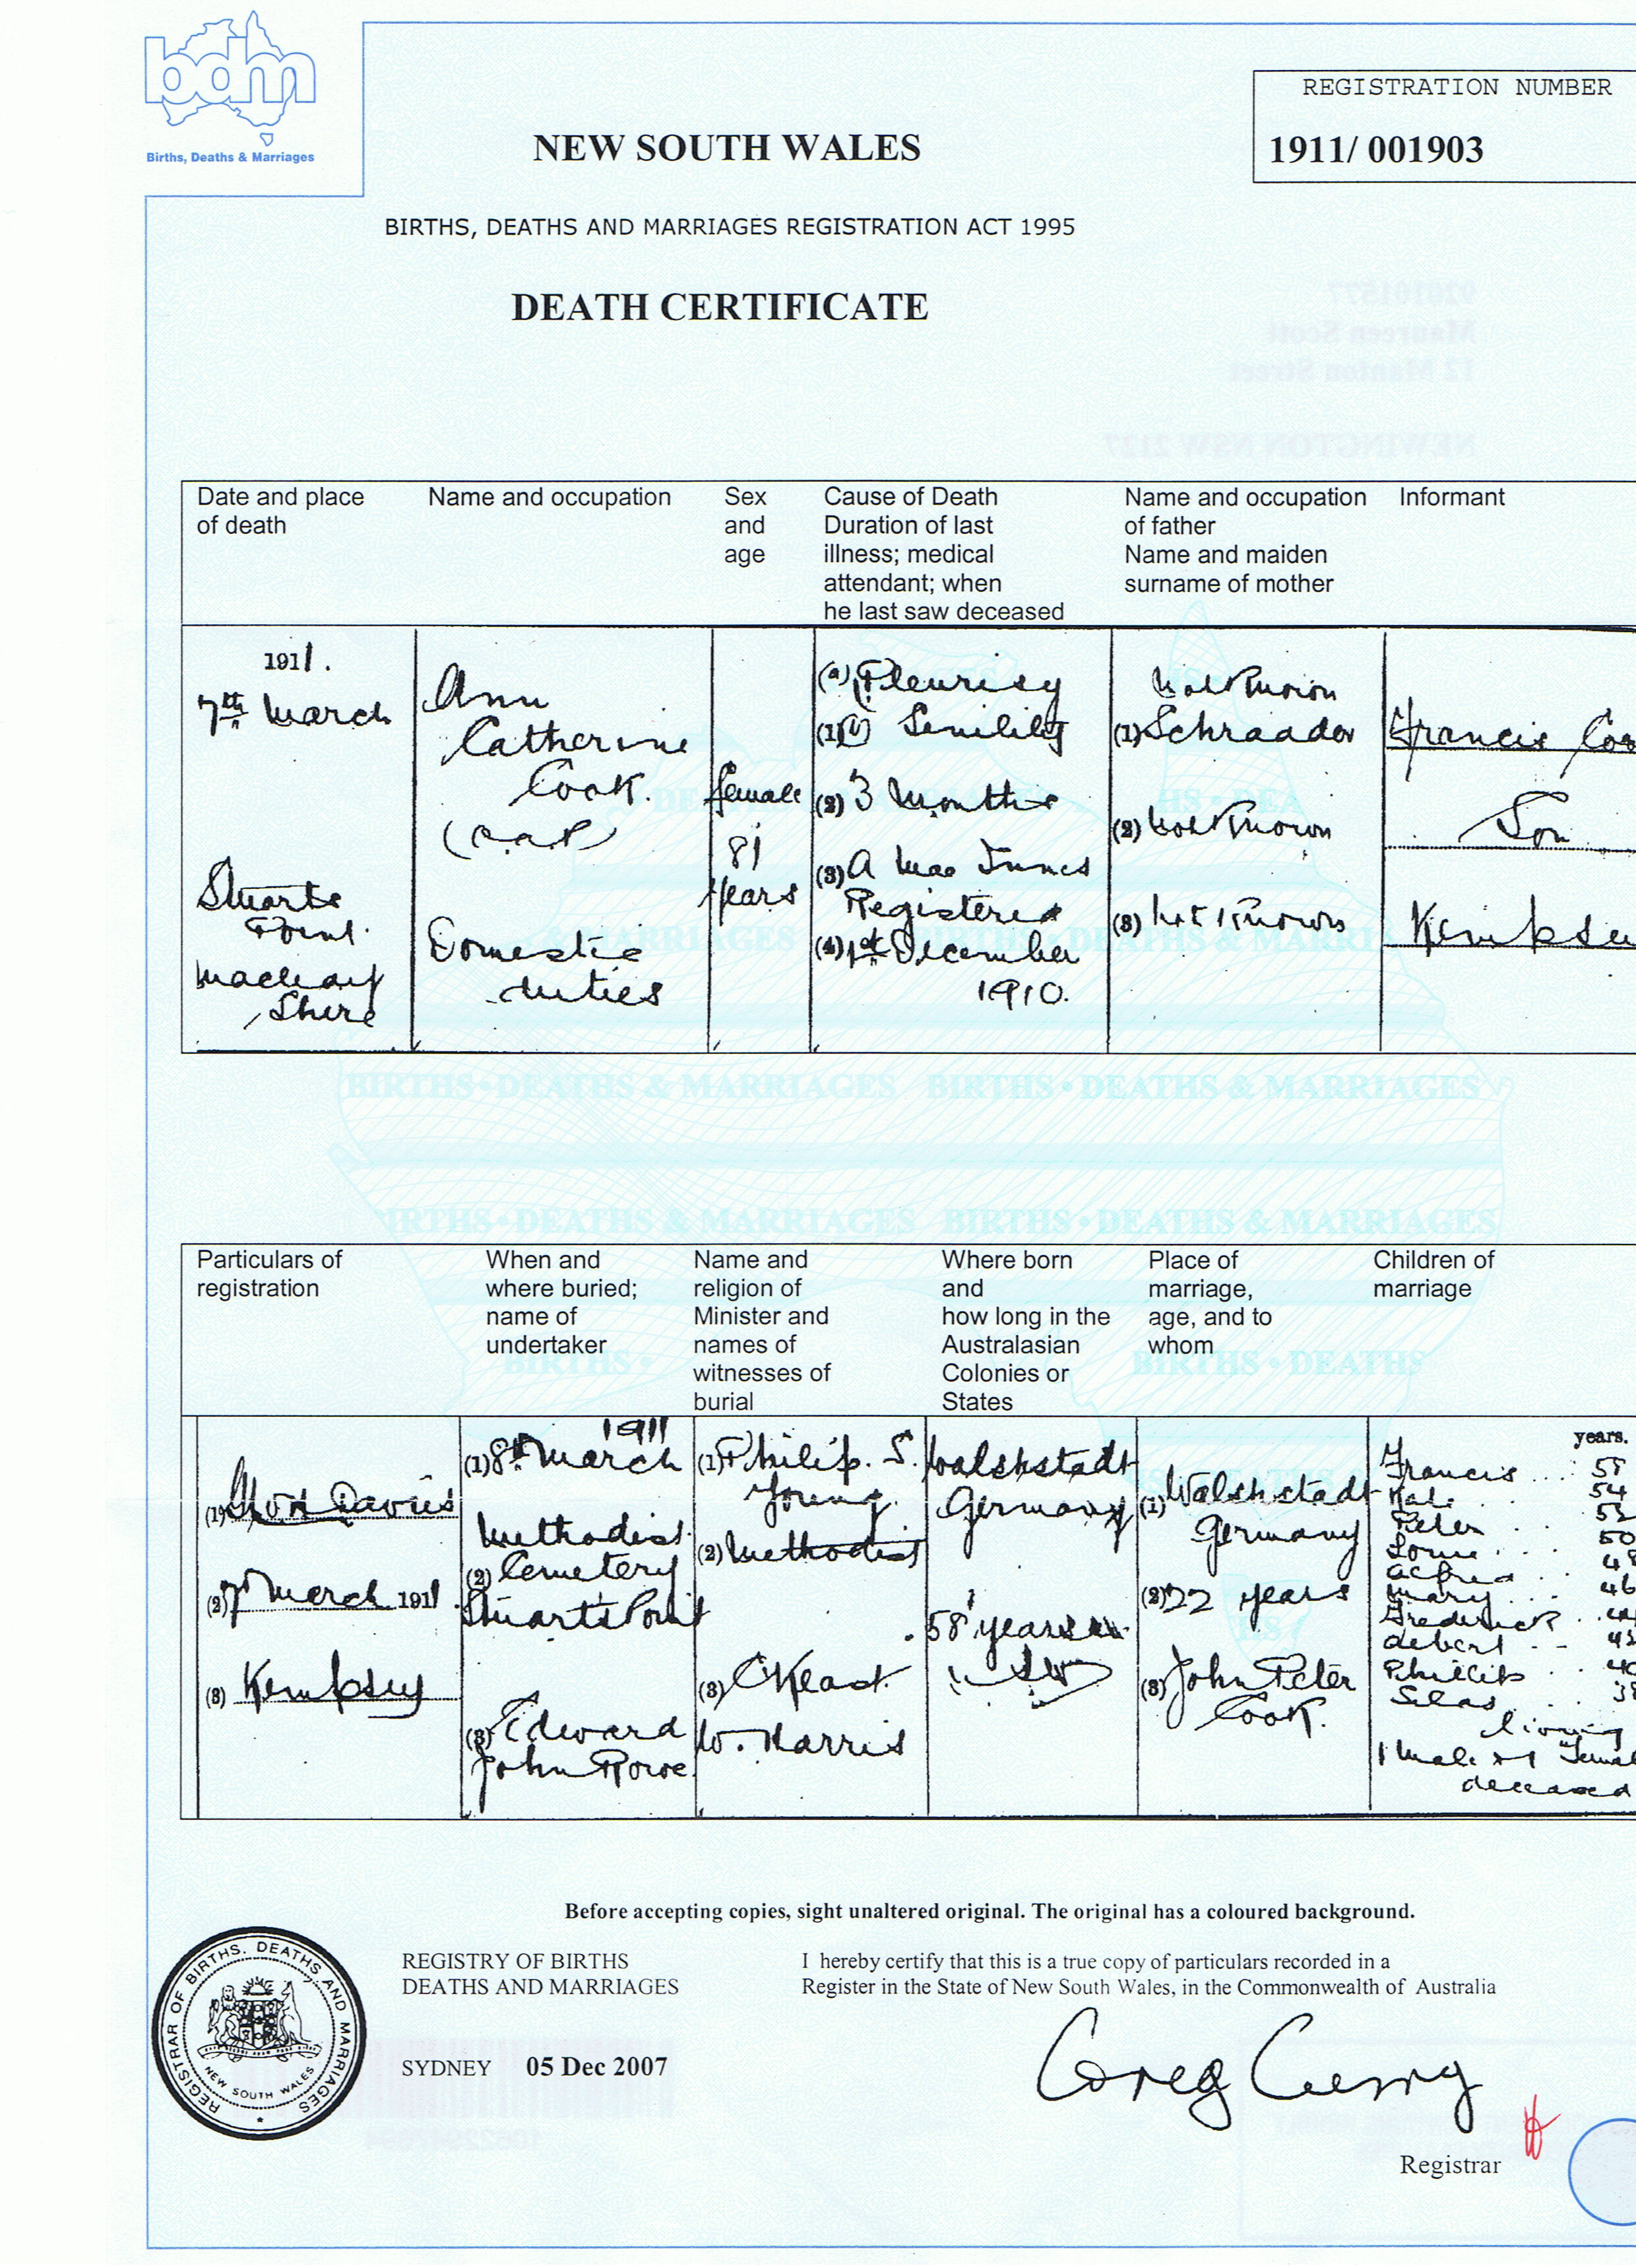 bdm
Births, Deaths & Marriages
REGISTRATION NUMBER
1911/ 001903
NEW SOUTH WALES
BIRTHS, DEATHS AND MARRIAGES REGISTRATION ACT 1995
DEATH CERTIFICATE
Date and place
of death
Name and occupation
Sex
and
age
Cause of Death
Duration of last
illness; medical
attendant; when
he last saw deceased
Name and occupation
of father
Name and maiden
surname of mother
Informant
1911.
7th March
Stuarts
Point
Macleay
Shire
Ann
Catherine
Cook.
(O.A.P)
Domestic
duties
female
81
years
(a) Pleurisy
(1)(b) Senility
(2) 3 Months
(3) A Mac Innes
Registered
(4) 1st December
1910.
Not Known
(1) Schraader
(2) Not Known
(3) Not Known
Francis
Son
Particulars of
registration
When and
where buried;
name of
undertaker
Name and
religion of
Minister and
names of
witnesses of
burial
Where born
and
how long in the
Australasian
Colonies or
States
Place of
marriage,
age, and to
whom
Children of
marriage
(1) Davies
(2) 7 March 1911.
(3) Kempsey
1911
(1) 8th March
Methodist
(2) Cemetery
Stuarts Point
(3) Edward
John Rowe.
(1) Philip. S.
Young.
(2) Methodist
(3) C Keast.
W. Harris
Walshstadt
Germany
58 years
(1) Walshstadt
Germany
(2) 22 years
(3) John Peter
Cook.
years.
Francis
Kate
54
Peter
Louie
50
Alfred
Mary
46
Frederick
Albert
Phillip
Silas
living
1 Male & 1
deceased
Before accepting copies, sight unaltered original. The original has a coloured background.
REGISTRY OF BIRTHS
DEATHS AND MARRIAGES
SYDNEY 05 Dec 2007
I hereby certify that this is a true copy of particulars recorded in a
Register in the State of New South Wales, in the Commonwealth of Australia
Registrar
REGISTRAR OF BIRTHS. DEATHS AND MARRIAGES
NEW SOUTH WALES
BIRTHS • DEATHS & MARRIAGES BIRTHS • DEATHS & MARRIAGES